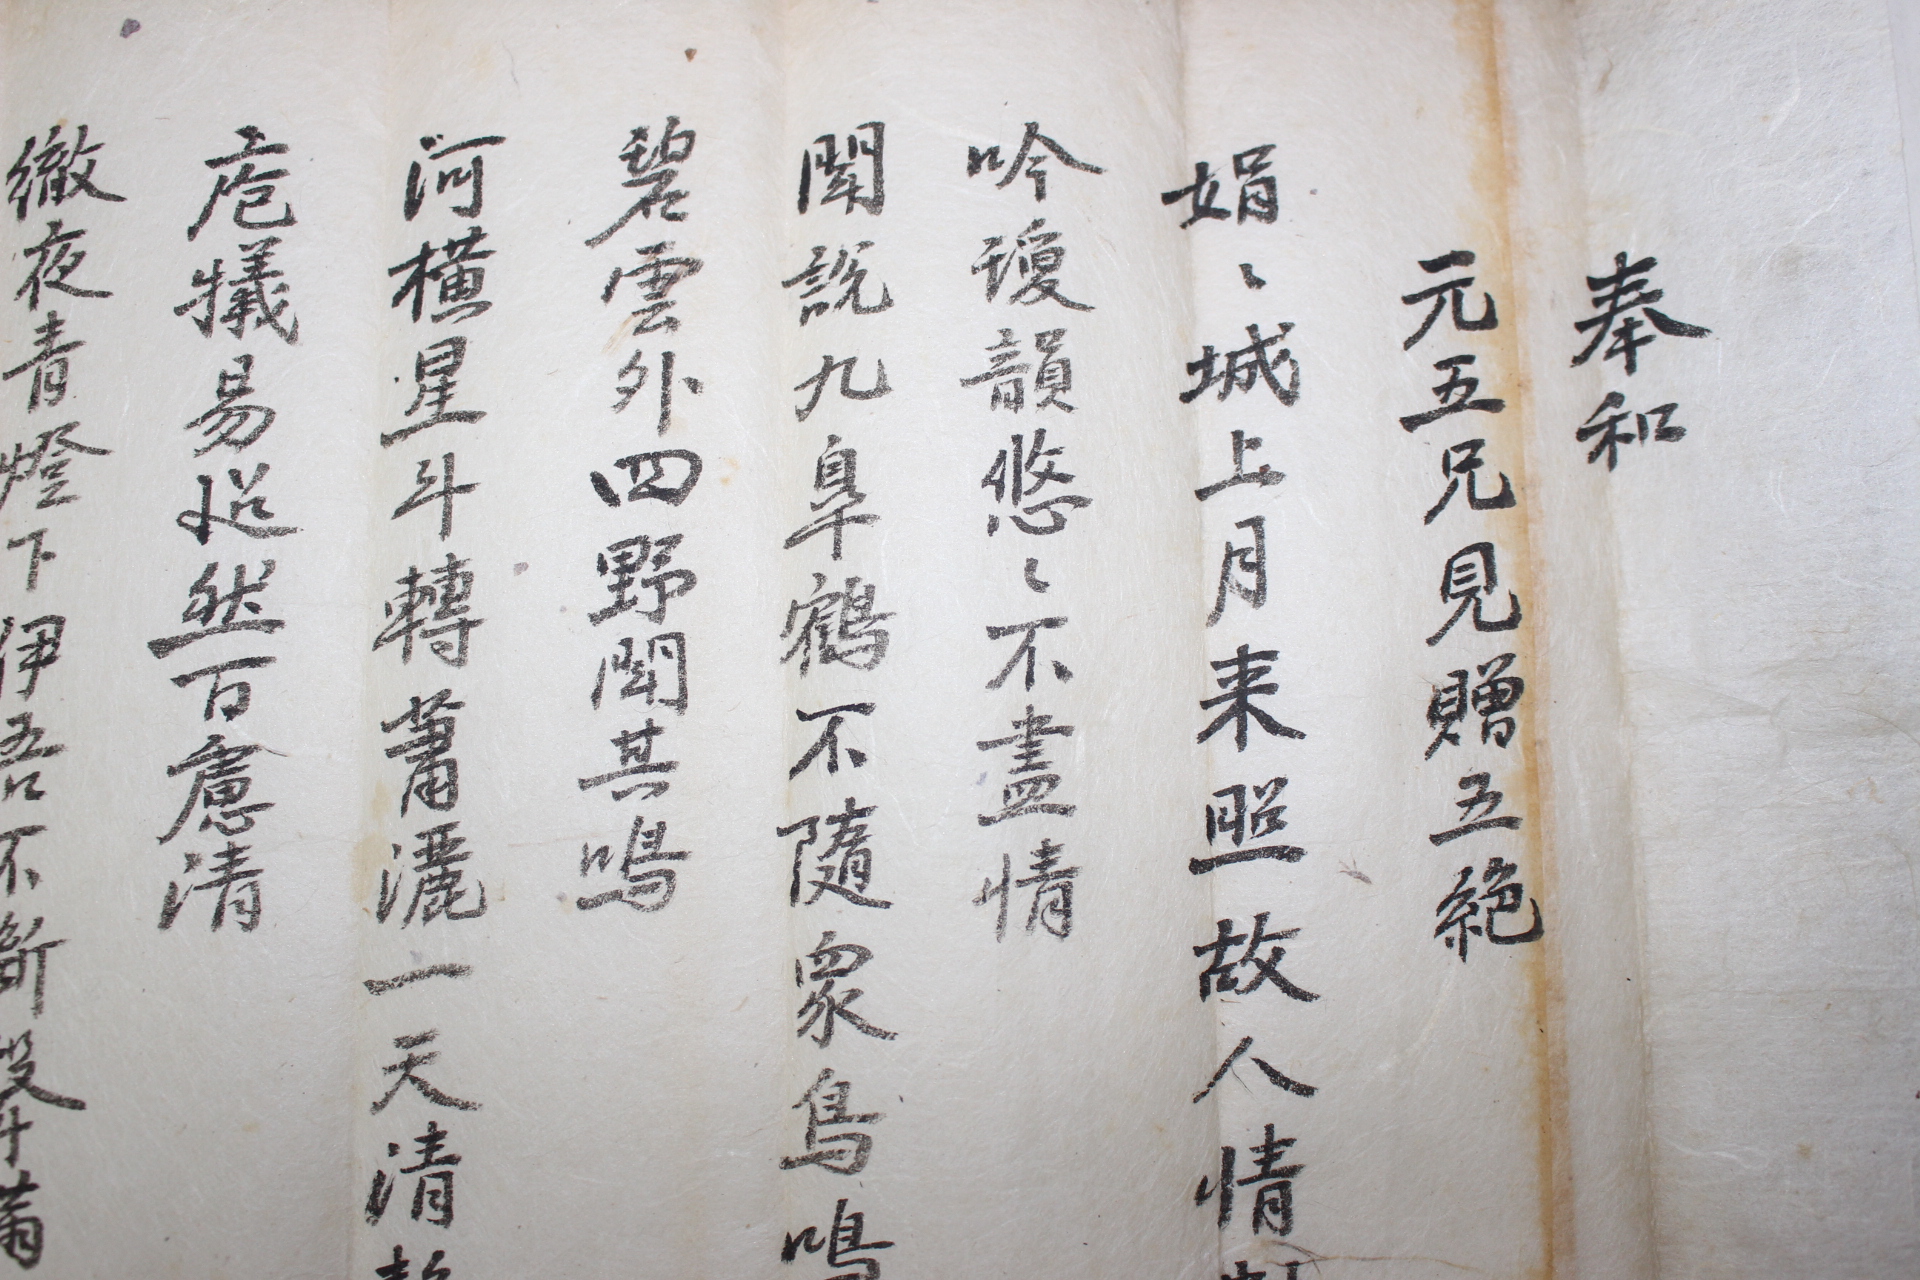 奉和
元五兄見贈五絶
娟〻城上月来照故人情
吟瓊韻悠〻不盡情
聞說九皐鶴不隨衆鳥鳴
碧雲外四野聞其鳴
河橫星斗轉蕭灑一天清
庖犧易超然百慮清
徹夜青燈下伊吾不斷聲